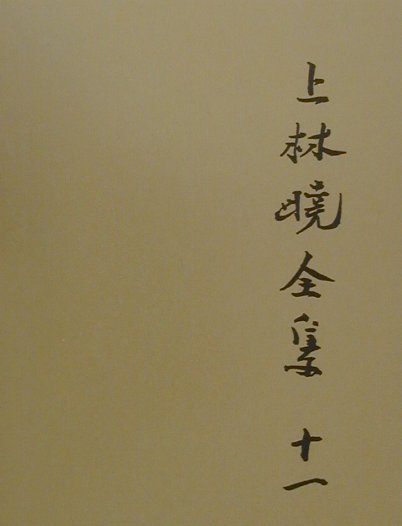 上林曉全集 十一